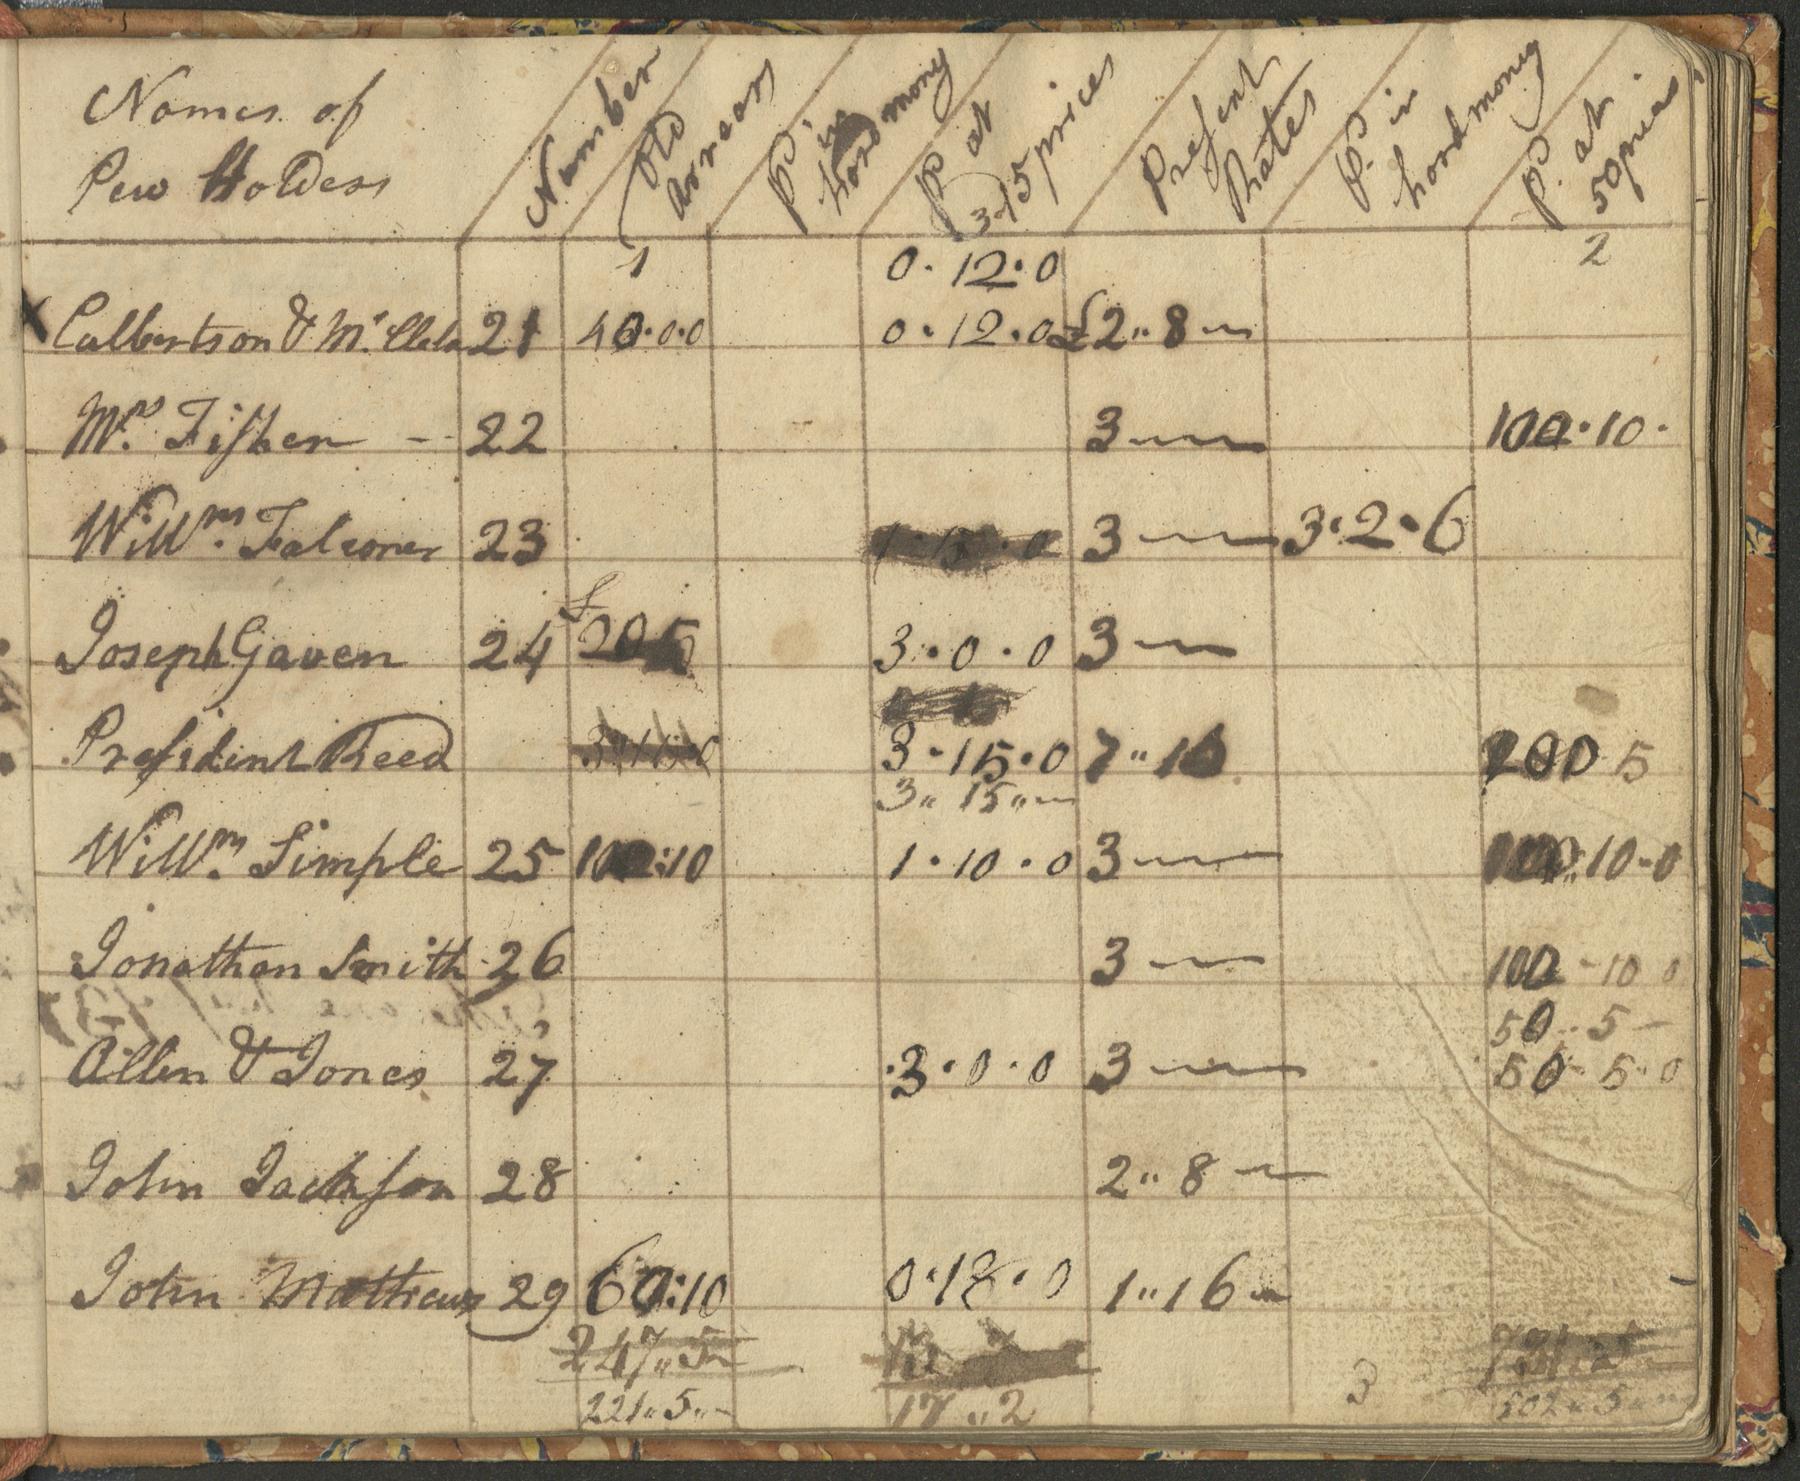 Names of
Pew Holders
Number
Old
Arrears
Pd in
hard mony
Pd at
3.15 prices
Present
Rates
Pd in
hard money
Pd at
50 prices
1
0. 12. 0
2
Culbertson & Mc 21 40.0.0 0.12.0 £2.. 8
Mrs Fisher - 22 3 100.10.
Willm. Falconer 23 3 3.2.6
Joseph Gaven 24 £ 3.0.0 3
President Reed 3.15.0 7.. 10 200 5
3.. 15..
Willm. Simple 25 100:10 1.10.0 3 100:10-0
Jonathan Smith 26 3 100-10 0
50.. 5 -
Allen & Jones 27 .3.0.0 3 50. 5.0
John Jackson 28 2.. 8
John Mathews 29 60:10 0.18.0 1..16
247..5
221..5.. 17..2 3 502.. 5